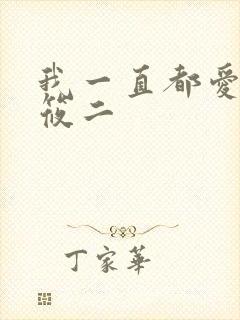 我一直都愛
筱二
丁家華